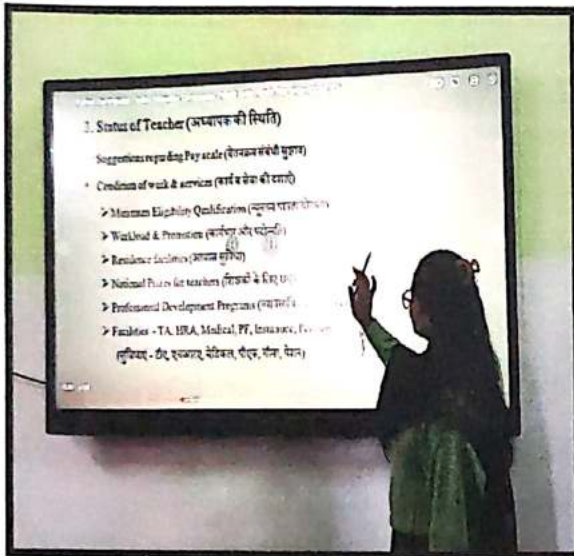 2. Status of Teacher (अध्यापक की स्थिति)
Suggestions regarding Pay scale (वेतनक्रम संबंधी सुझाव)
• Condition of work & services (कार्य व सेवा की दशाएं)
➤ Minimum Eligibility Qualification (न्यूनतम
➤ Workload & Promotion (कार्यभार और पदोन्नति)
➤ Residence facilities (आवास सुविधा)
➤ National Prizes for teachers (शिक्षकों के लिए
➤ Professional Development Programs
➤ Facilities - TA, HRA, Medical, PF, Insurance,
(सुविधाएं - टीए, एचआरए, मेडिकल, पीएफ, बीमा, पेंशन)